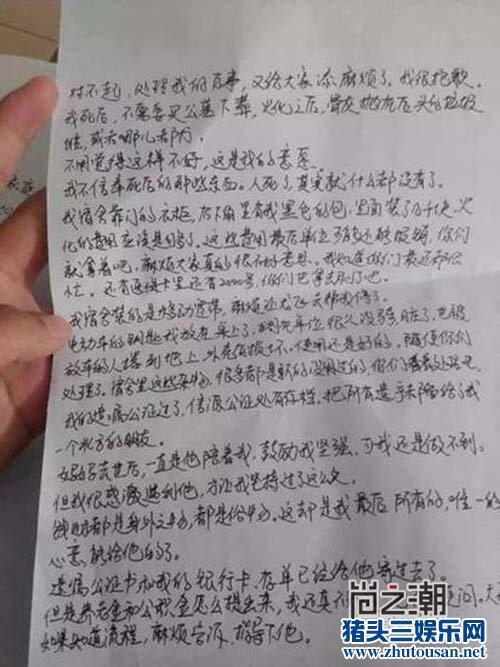 对不起，处理我的后事，又给大家添麻烦了。我很抱歉。
我死后，不需要买公墓下葬，火化之后，骨灰抛
或者哪儿都行。
不用觉得这样不好，这是我的意愿。
我不信奉死后的那些东西。人死了，其实就什么都没有了。
我宿舍靠门的衣柜，左下角里有我黑色的包，里面装了几千块，火
化的费用应该是够了。这些费用最后单位可能还能报销，你们
就拿着吧，麻烦大家真的很不好意思。我知道你们最近都很
忙。还有医保卡里还有2000多，你们也拿去刷了吧。
我宿舍装的是移动宽带，麻烦
电动车的钥匙我放在桌上了。
放车的人撞到地上，外壳有损坏，使用还是好的。随便你们
处理了。宿舍里这些东西，很多都是新的没用过的，你们看着处理吧
我的遗嘱公证过了，信源公证处有存档，把所有遗产都留给了我
一个北方的朋友。
妈妈去世后，一直是他陪着我，鼓励我坚强，可我还是做不到。
但我很感激遇到他，才让我坚持过了这么久。
钱
都是身外之物，都是俗物。这却是我最后所有的，唯一的
心意，能给他的了。
遗嘱公证书和我的银行卡、存单已经给他寄过去了。
但是养老金和公积金怎么提出来，我还真不
如果知道流程，麻烦告诉、指导下他。
尚之潮
猪头三娱乐网
www.zhutousan.net